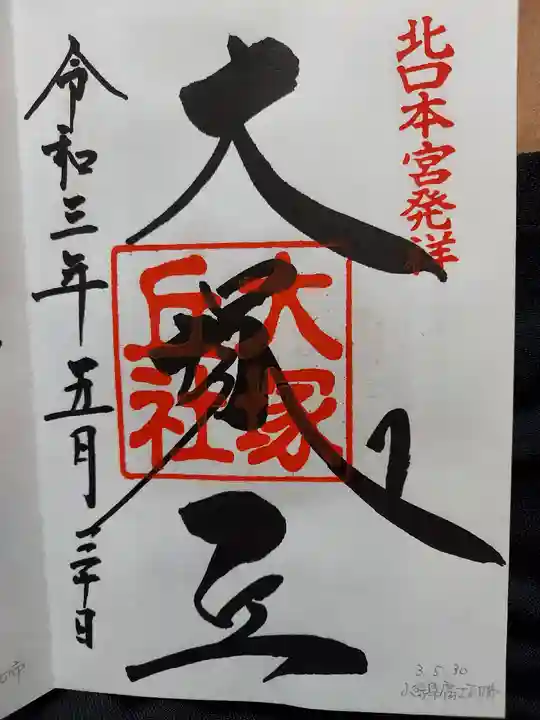 北口本宮発祥
大塚丘
大塚
丘社
令和三年五月三十日
3.5.30